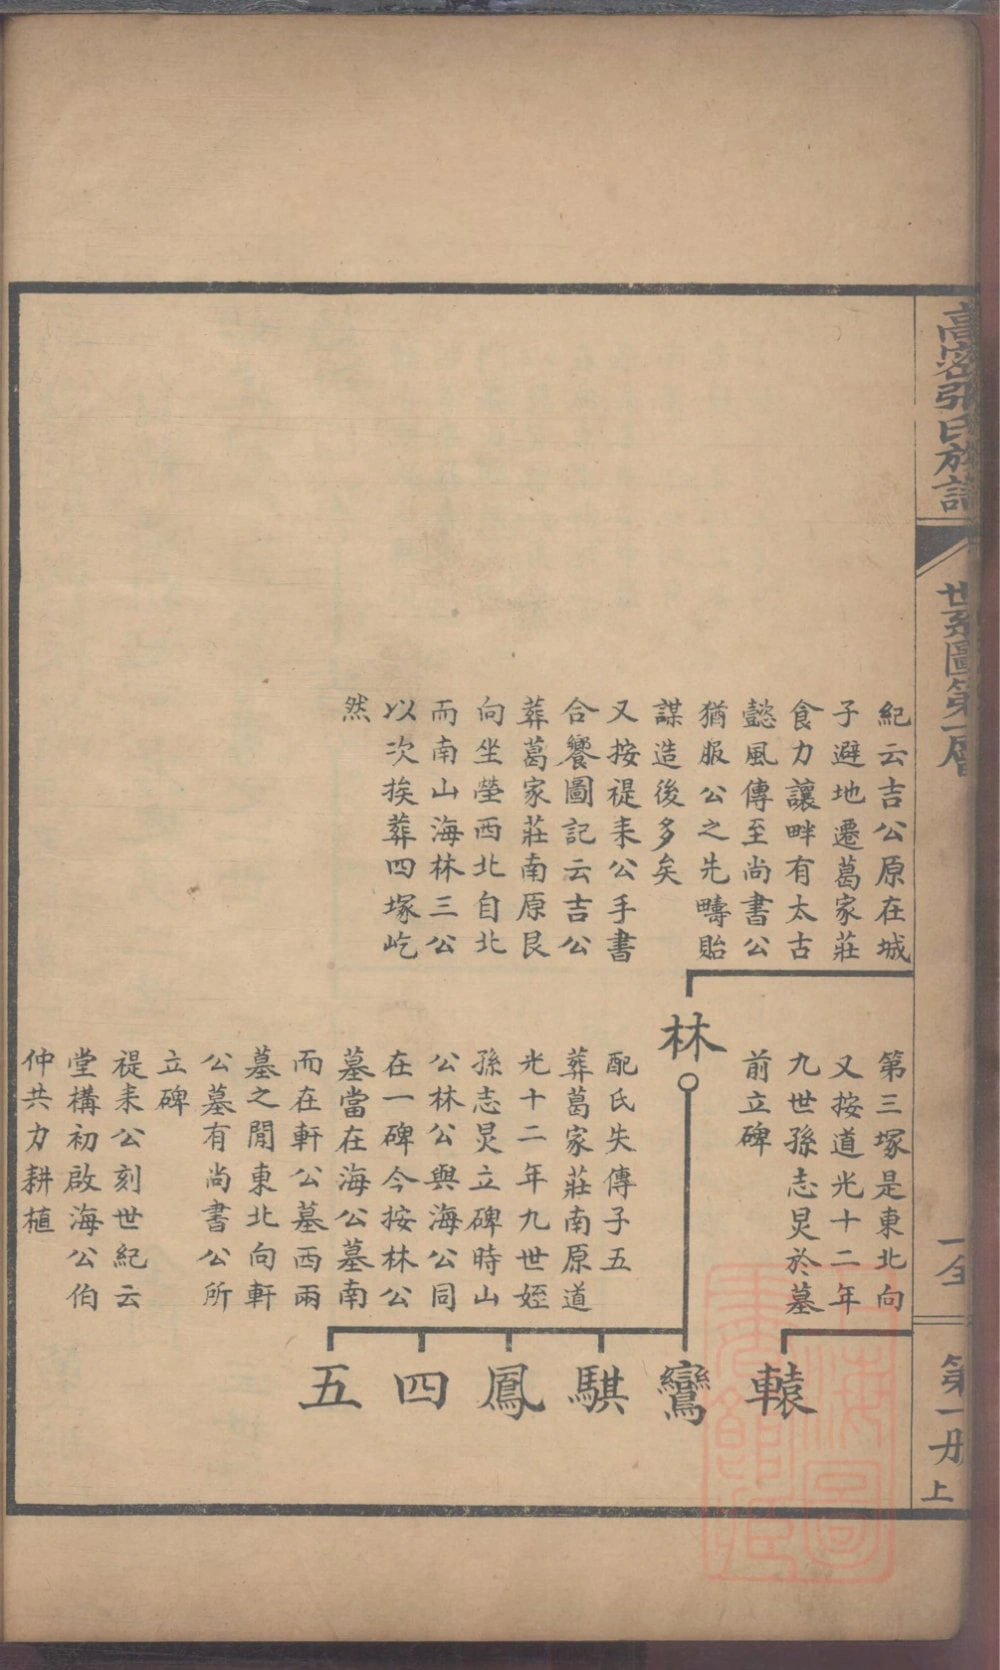 高密張氏族譜
世系圖第一層
一仝
第一册
上
紀云吉公原在城
子避地遷葛家莊
食力讓畔有太古
懿風傳至尚書公
猶服公之先疇貽
謀造後多矣
又按禔耒公手書
合饗圖記云吉公
葬葛家莊南原艮
向坐塋西北自北
而南山海林三公
以次挨葬四塚屹
然
第三塚是東北向
又按道光十二年
九世孫志炅於墓
前立碑
林
配氏失傳子五
葬葛家莊南原道
光十二年九世姪
孫志炅立碑時山
公林公與海公同
在一碑今按林公
墓當在海公墓南
而在軒公墓西兩
墓之閒東北向軒
公墓有尚書公所
立碑
禔耒公刻世紀云
堂構初啟海公伯
仲共力耕植
轅
鸞
騏
鳳
四
五
上海圖書館藏